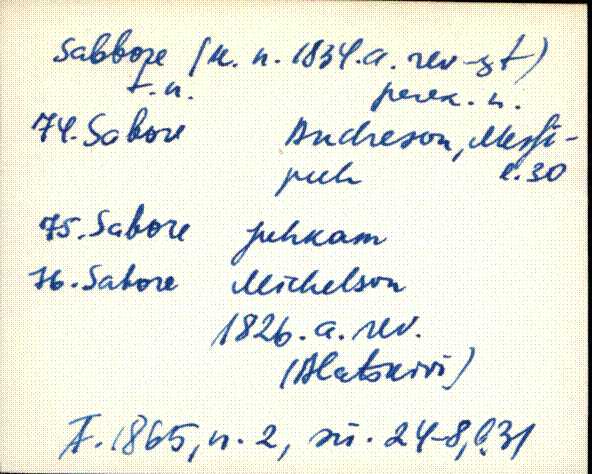 Sabbore (k. n. 1834.a. rev-st)
t. n. perek. n.
74. Sabore Andreson, Messi-
puh l. 30
75. Sabore Juhkam
76. Sabore Michelson
1826. a. rev.
(Alatskivi)
F. 1865, n. 2, sü. 24-8, l. 31